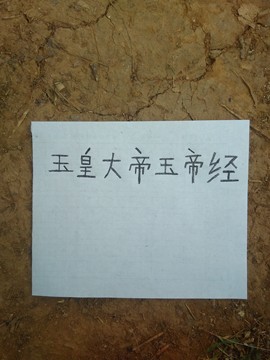 玉皇大帝玉帝经